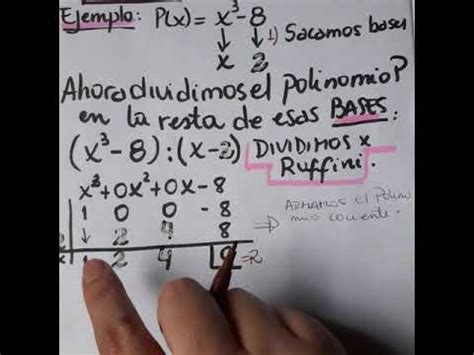 Ejemplo: P(x)= x³-8 1) Sacamos bases
↓ ↓
x 2
Ahora dividimos el polinomio P
en la resta de esas BASES:
(x³-8):(x-2) DIVIDIMOS x
Ruffini.
x³+0x²+0x-8
1 0 0 -8
↓ 2 4 8
1 2 4 0 =R
⇒ ARMAMOS el Polino
mio cociente.